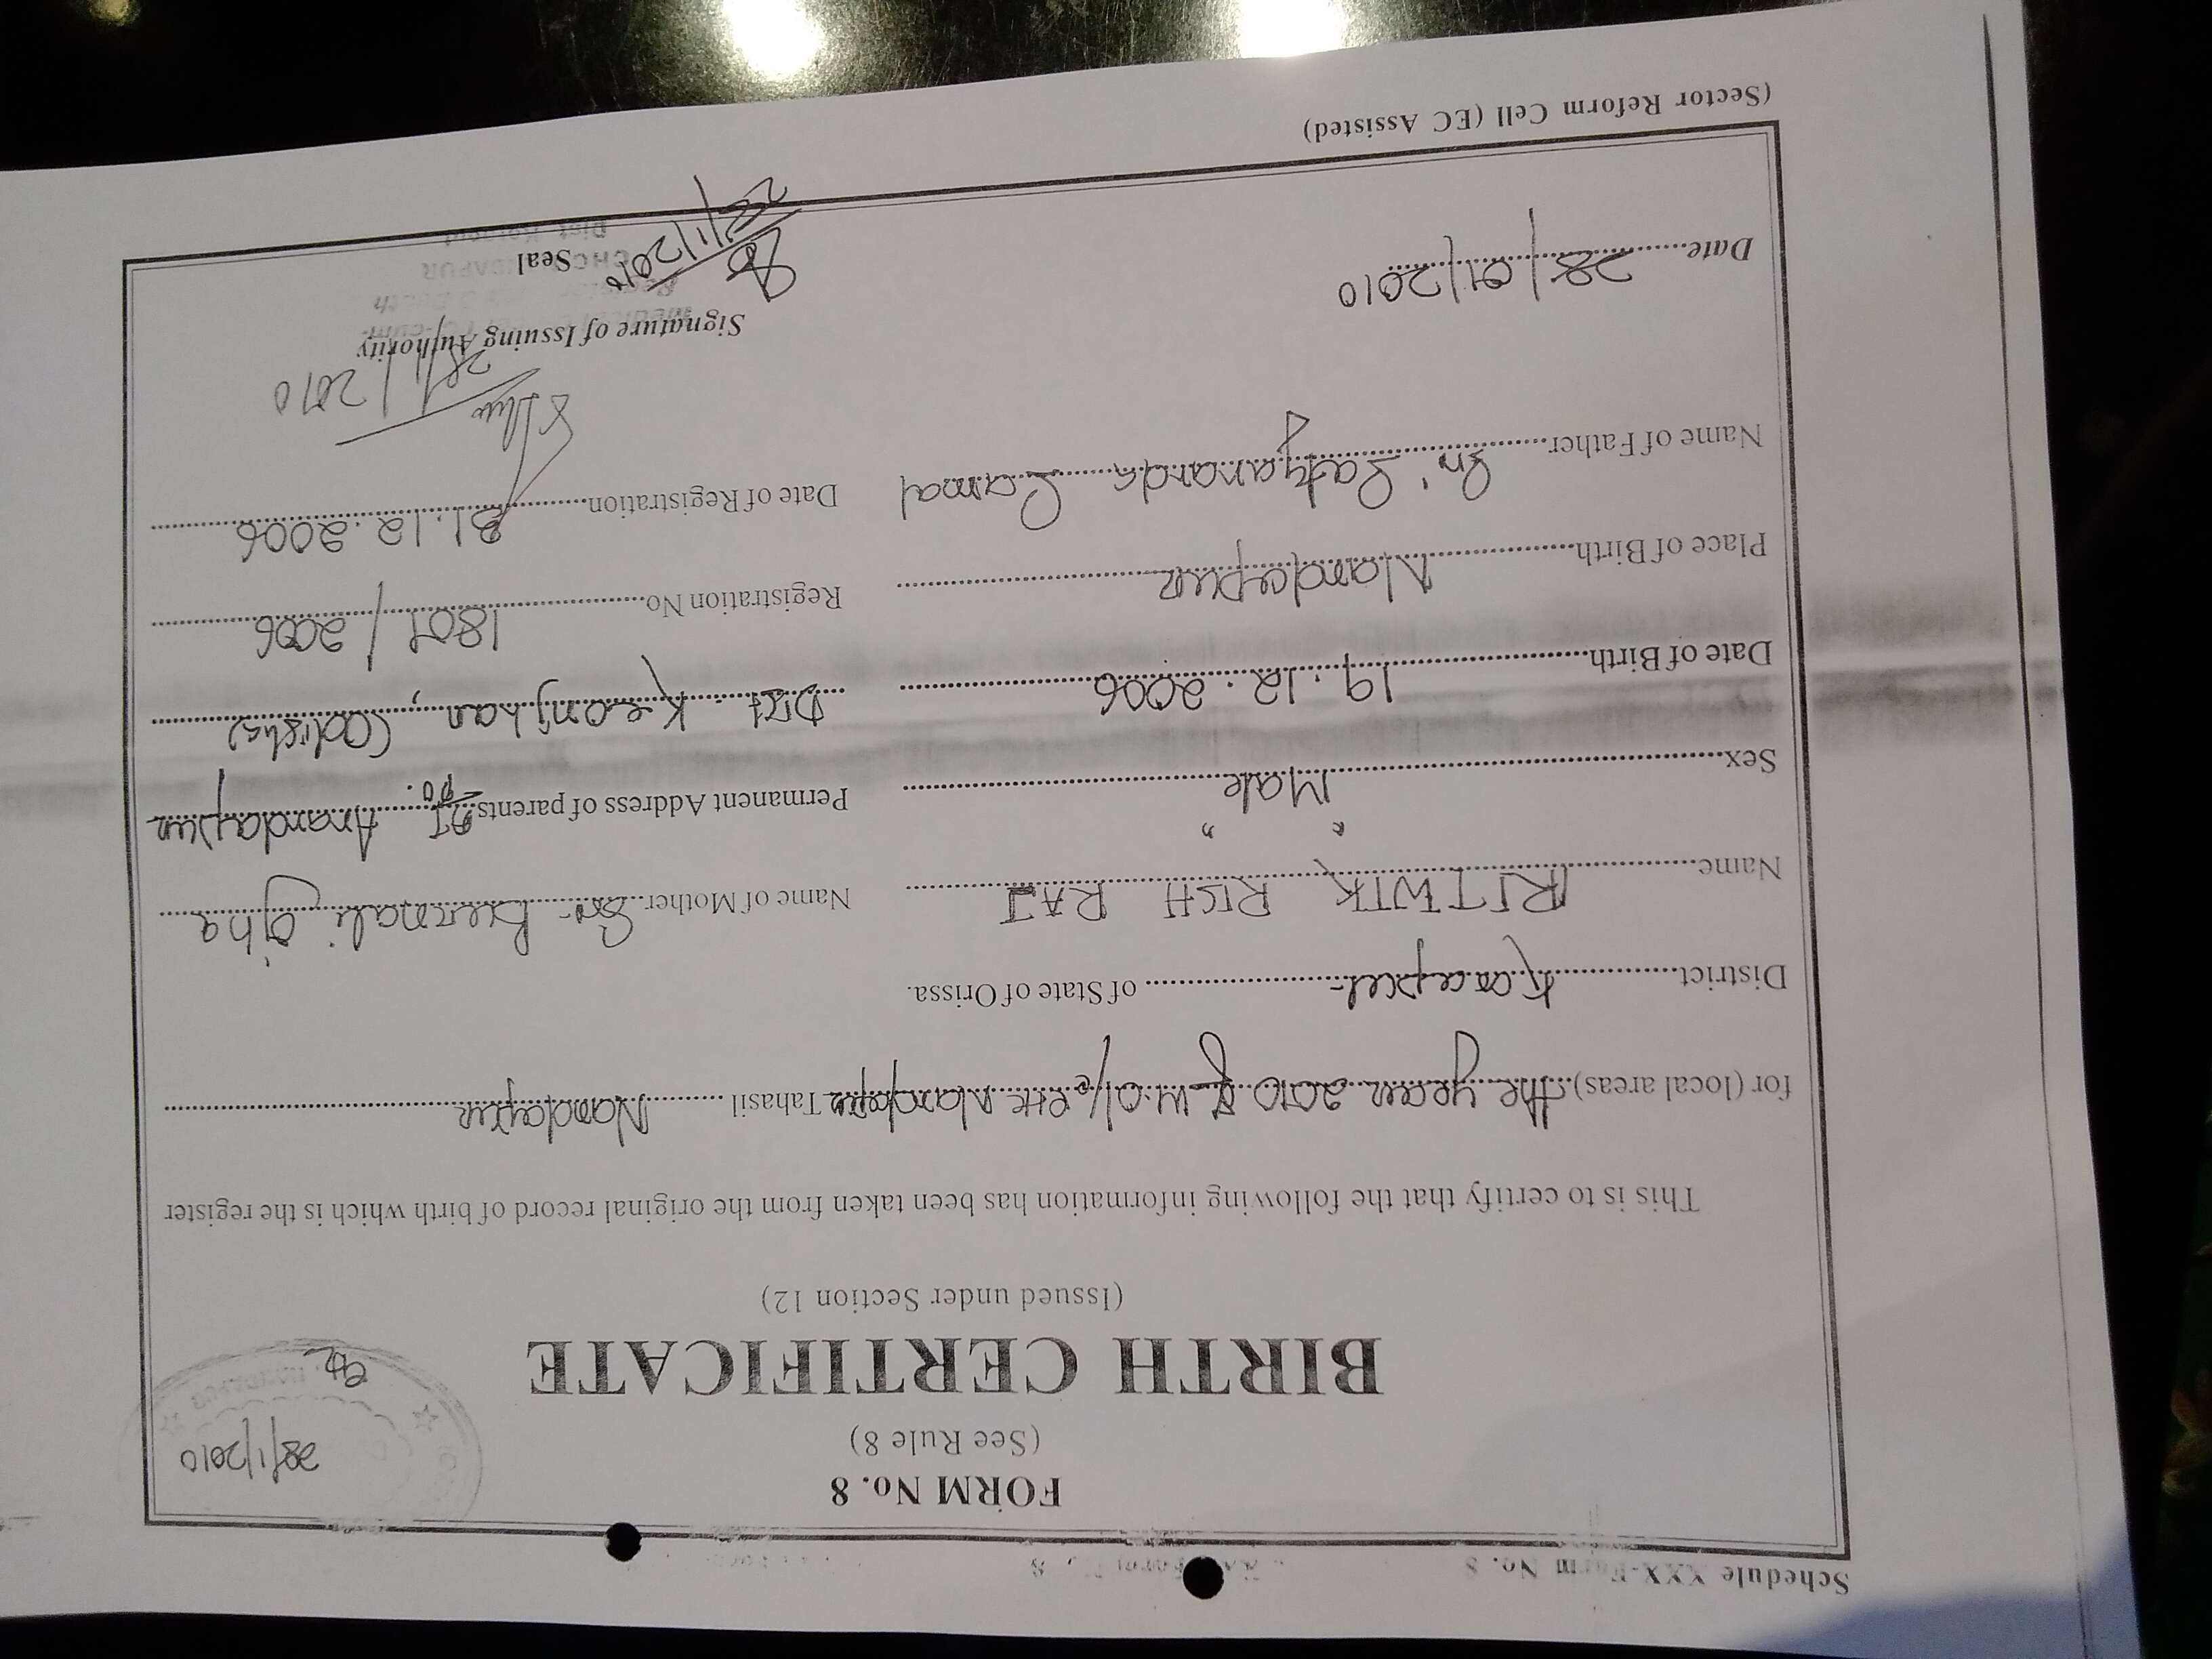 Schedule XXX-Form No. 8
FORM No. 8
(See Rule 8)
28/1/2010
BIRTH CERTIFICATE
(Issued under Section 12)
This is to certify that the following information has been taken from the original record of birth which is the register
for (local areas) the year 2010 of Nandapur Tahasil Nandapur
District Koraput of State of Orissa.
Name RITWIK RISH RAJ
Name of Mother Smt. Ojha
Sex "Male"
Permanent Address of parents AT PO. Anandapur
Dist. Keonjhar, (Odisha)
Date of Birth 19.12.2006
Registration No. 1807/2006
Place of Birth Nandapur
Date of Registration 31.12.2006
Name of Father Sri Satyananda Samal
28/1/2010
Signature of Issuing Authority
Date 28/01/2010
Seal
28/1/2010
(Sector Reform Cell (EC Assisted)